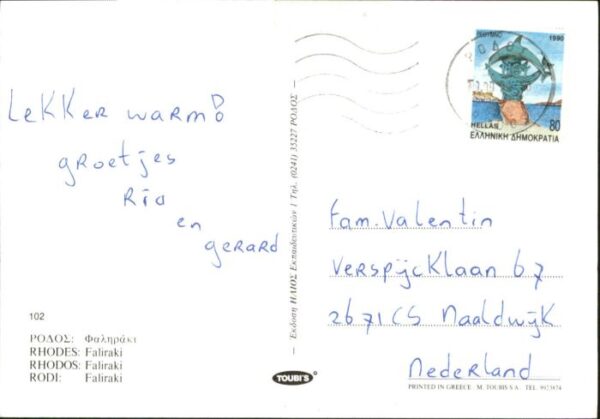 LEKKER WARM!
groetjes
RIA
en
gerard
102
ΡΟΔΟΣ: Φαληράκι
RHODES: Faliraki
RHODOS: Faliraki
RODI: Faliraki
— Έκδοση ΗΛΙΟΣ Εκπαιδευτικών 1 Τηλ. (0241) 35227 ΡΟΔΟΣ —
TOUBI'S
1990
HELLAS
80
ΕΛΛΗΝΙΚΗ ΔΗΜΟΚΡΑΤΙΑ
Fam. Valentin
Verspijcklaan 67
2671CS Naaldwijk
Nederland
PRINTED IN GREECE M. TOUBIS S.A. TEL. 9923874